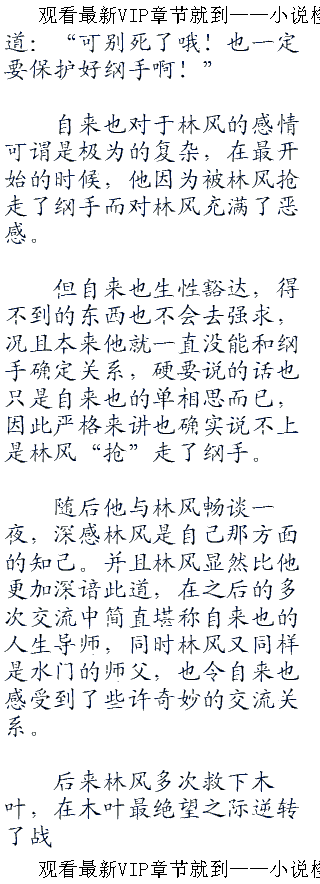 观看最新VIP章节就到——小说
道：“可别死了哦！也一定
要保护好纲手啊！”
自来也对于林风的感情
可谓是极为的复杂，在最开
始的时候，他因为被林风抢
走了纲手而对林风充满了恶
感。
但自来也生性豁达，得
不到的东西也不会去强求，
况且本来他就一直没能和纲
手确定关系，硬要说的话也
只是自来也的单相思而已，
因此严格来讲也确实说不上
是林风“抢”走了纲手。
随后他与林风畅谈一
夜，深感林风是自己那方面
的知己。并且林风显然比他
更加深谙此道，在之后的多
次交流中简直堪称自来也的
人生导师，同时林风又同样
是水门的师父，也令自来也
感受到了些许奇妙的交流关
系。
后来林风多次救下木
叶，在木叶最绝望之际逆转
了战
观看最新VIP章节就到——小说